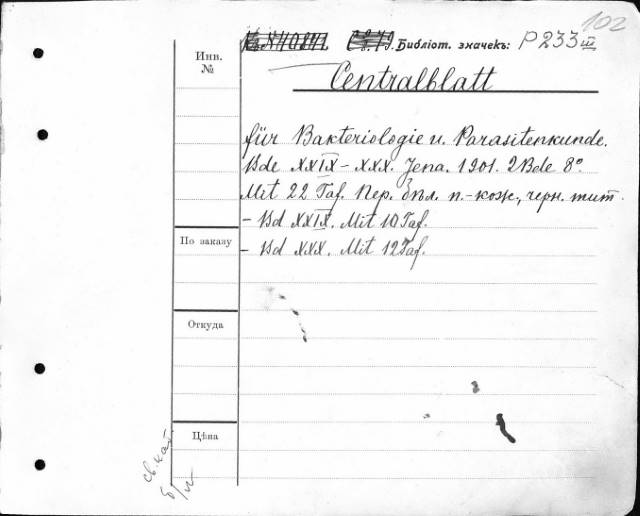 102
Библіот. значекъ: P 233 III
Инв. №
Centralblatt
für Bakteriologie u. Parasitenkunde.
Bde XXIX–XXX. Jena. 1901. 2 Bde 8°
Mit 22 Taf. Пер. бѣл. п.-кож., черн. тит.
– Bd XXIX. Mit 10 Taf.
– Bd XXX. Mit 12 Taf.
По заказу
Откуда
Цѣна